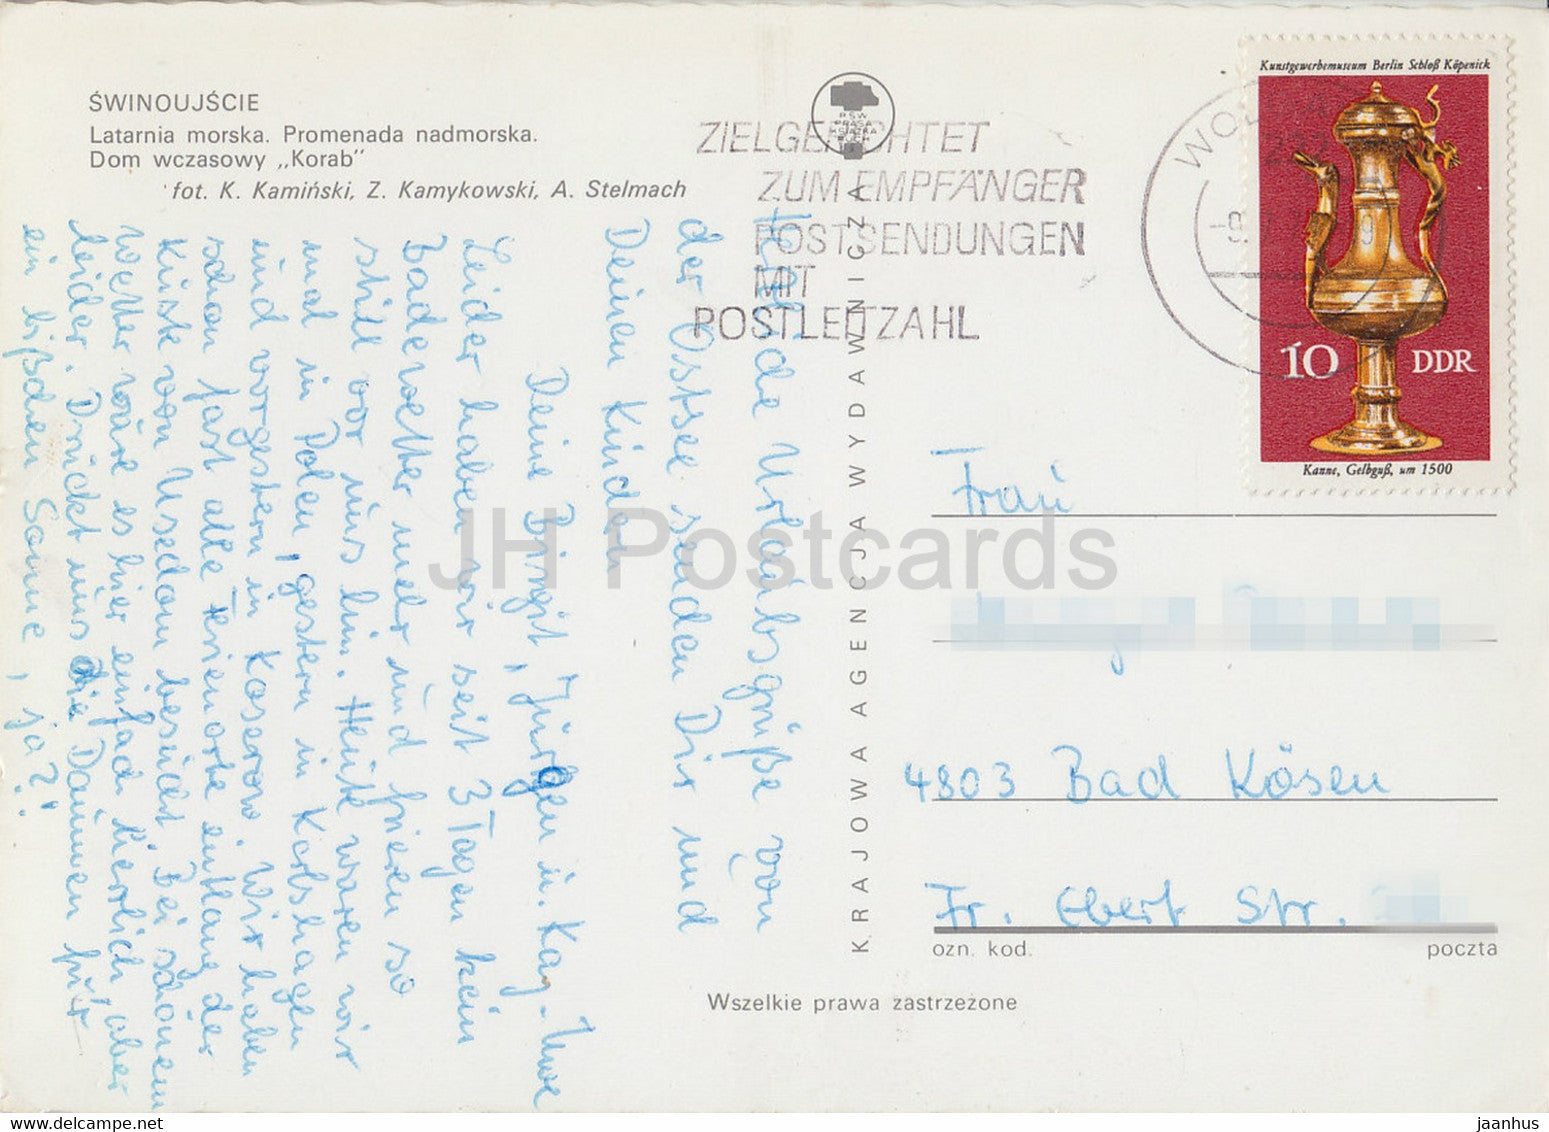 ŚWINOUJŚCIE
Latarnia morska. Promenada nadmorska.
Dom wczasowy „Korab”
fot. K. Kamiński, Z. Kamykowski, A. Stelmach
RSW
PRASA
KSIĄŻKA
RUCH
ZIELGERICHTET
ZUM EMPFÄNGER
POSTSENDUNGEN
MIT
POSTLEITZAHL
Kunstgewerbemuseum Berlin Schloß Köpenick
10 DDR
Kanne, Gelbguß, um 1500
KRAJOWA AGENCJA WYDAWNICZA
Urlaubsgrüße von
der Ostsee senden Dir und
Deinen Kindern
Deine Birgit, Jürgen u. Kay-Uwe
Leider haben wir seit 3 Tagen kein
Badewetter mehr und frieren so
still vor uns hin. Heute waren wir
mal in Polen, gestern in Karlshagen
und vorgestern in Koserow. Wir haben
schon fast alle Ferienorte entlang der
Küste von Usedom besucht. Bei schönem
Wetter wäre es hier einfach herrlich, aber
leider. Drückt uns die Daumen für
ein bißchen Sonne, ja?!
Frau
4803 Bad Kösen
Fr. Ebert Str.
ozn. kod. poczta
Wszelkie prawa zastrzeżone
JH Postcards
jaanhus